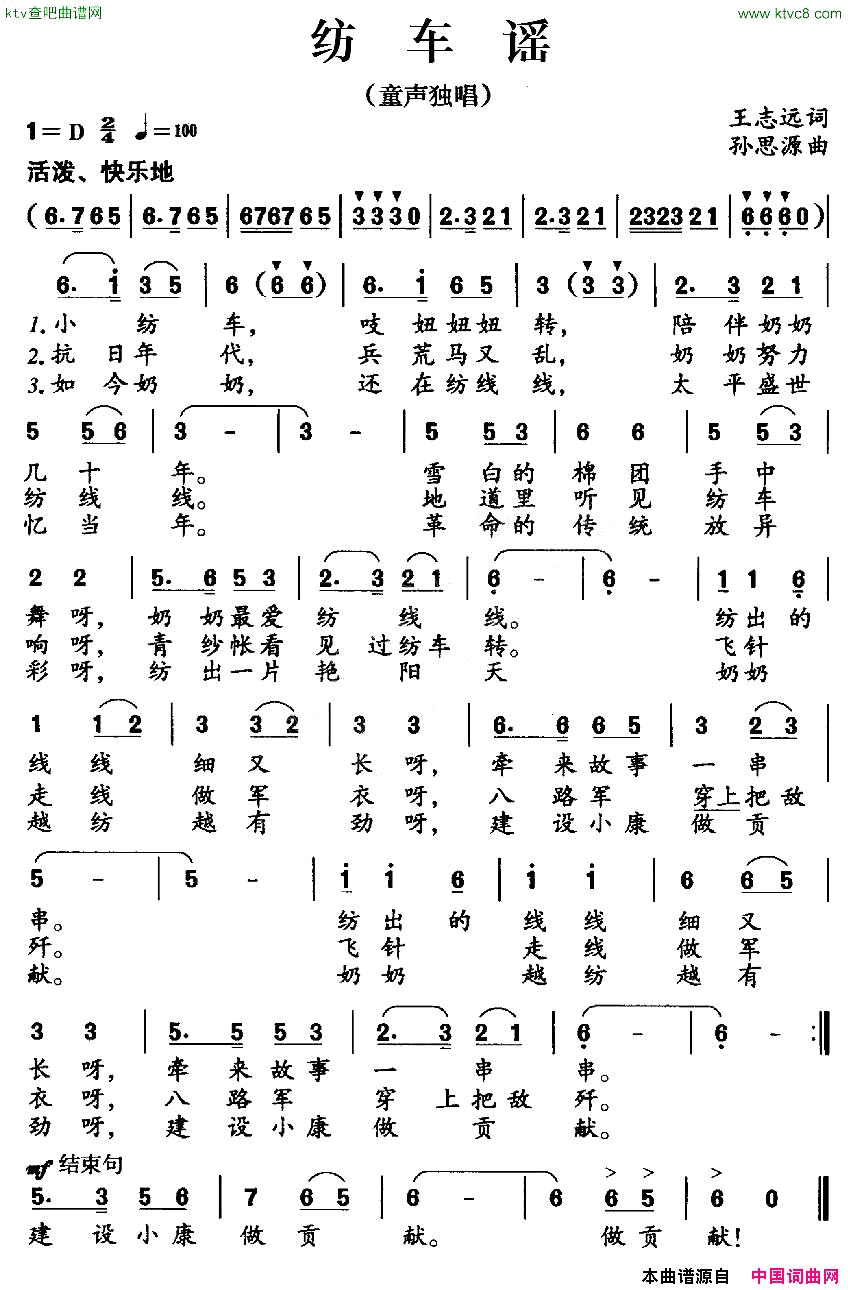 ktv查吧曲谱网 www.ktvc8.com
纺车谣
（童声独唱）
1=D 2/4 ♩=100 王志远词
孙思源曲
活泼、快乐地
(6.765 | 6.765 | 676765 | 3330 | 2.321 | 2.321 | 232321 | 6660) |
6. i 35 | 6 (66) | 6. i 65 | 3 (33) | 2. 3 21 |
1.小纺车，吱妞妞妞转，陪伴奶奶
2.抗日年代，兵荒马又乱，奶奶努力
3.如今奶奶，还在纺线线，太平盛世
5 56 | 3 - | 3 - | 5 53 | 6 6 | 5 53 |
几十年。雪白的棉团手中
纺线线。地道里听见纺车
忆当年。革命的传统放异
2 2 | 5. 6 53 | 2. 3 21 | 6 - | 6 - | 1 1 6 |
舞呀，奶奶最爱纺线线。纺出的
响呀，青纱帐看见过纺车转。飞针
彩呀，纺出一片艳阳天 奶奶
1 12 | 3 32 | 3 3 | 6. 6 65 | 3 23 |
线线细又长呀，牵来故事一串
走线做军衣呀，八路军穿上把敌
越纺越有劲呀，建设小康做贡
5 - | 5 - | i i 6 | i i | 6 65 |
串。纺出的线线细又
歼。飞针走线做军
献。奶奶越纺越有
3 3 | 5. 5 53 | 2. 3 21 | 6 - | 6 - :‖
长呀，牵来故事一串串。
衣呀，八路军穿上把敌歼。
劲呀，建设小康做贡献。
mf 结束句
5. 3 56 | 7 65 | 6 - | 6 - | 6 65 | 6 0 ‖
建设小康做贡献。做贡献！
本曲谱源自 中国词曲网